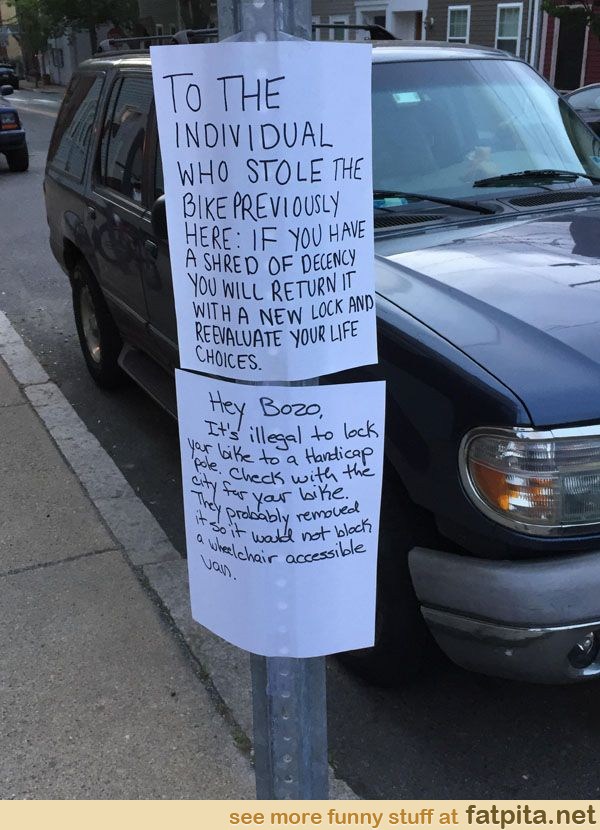 TO THE
INDIVIDUAL
WHO STOLE THE
BIKE PREVIOUSLY
HERE: IF YOU HAVE
A SHRED OF DECENCY
YOU WILL RETURN IT
WITH A NEW LOCK AND
REEVALUATE YOUR LIFE
CHOICES.
Hey Bozo,
It's illegal to lock
your bike to a Handicap
pole. Check with the
city for your bike.
They probably removed
it so it would not block
a wheelchair accessible
van.
see more funny stuff at fatpita.net